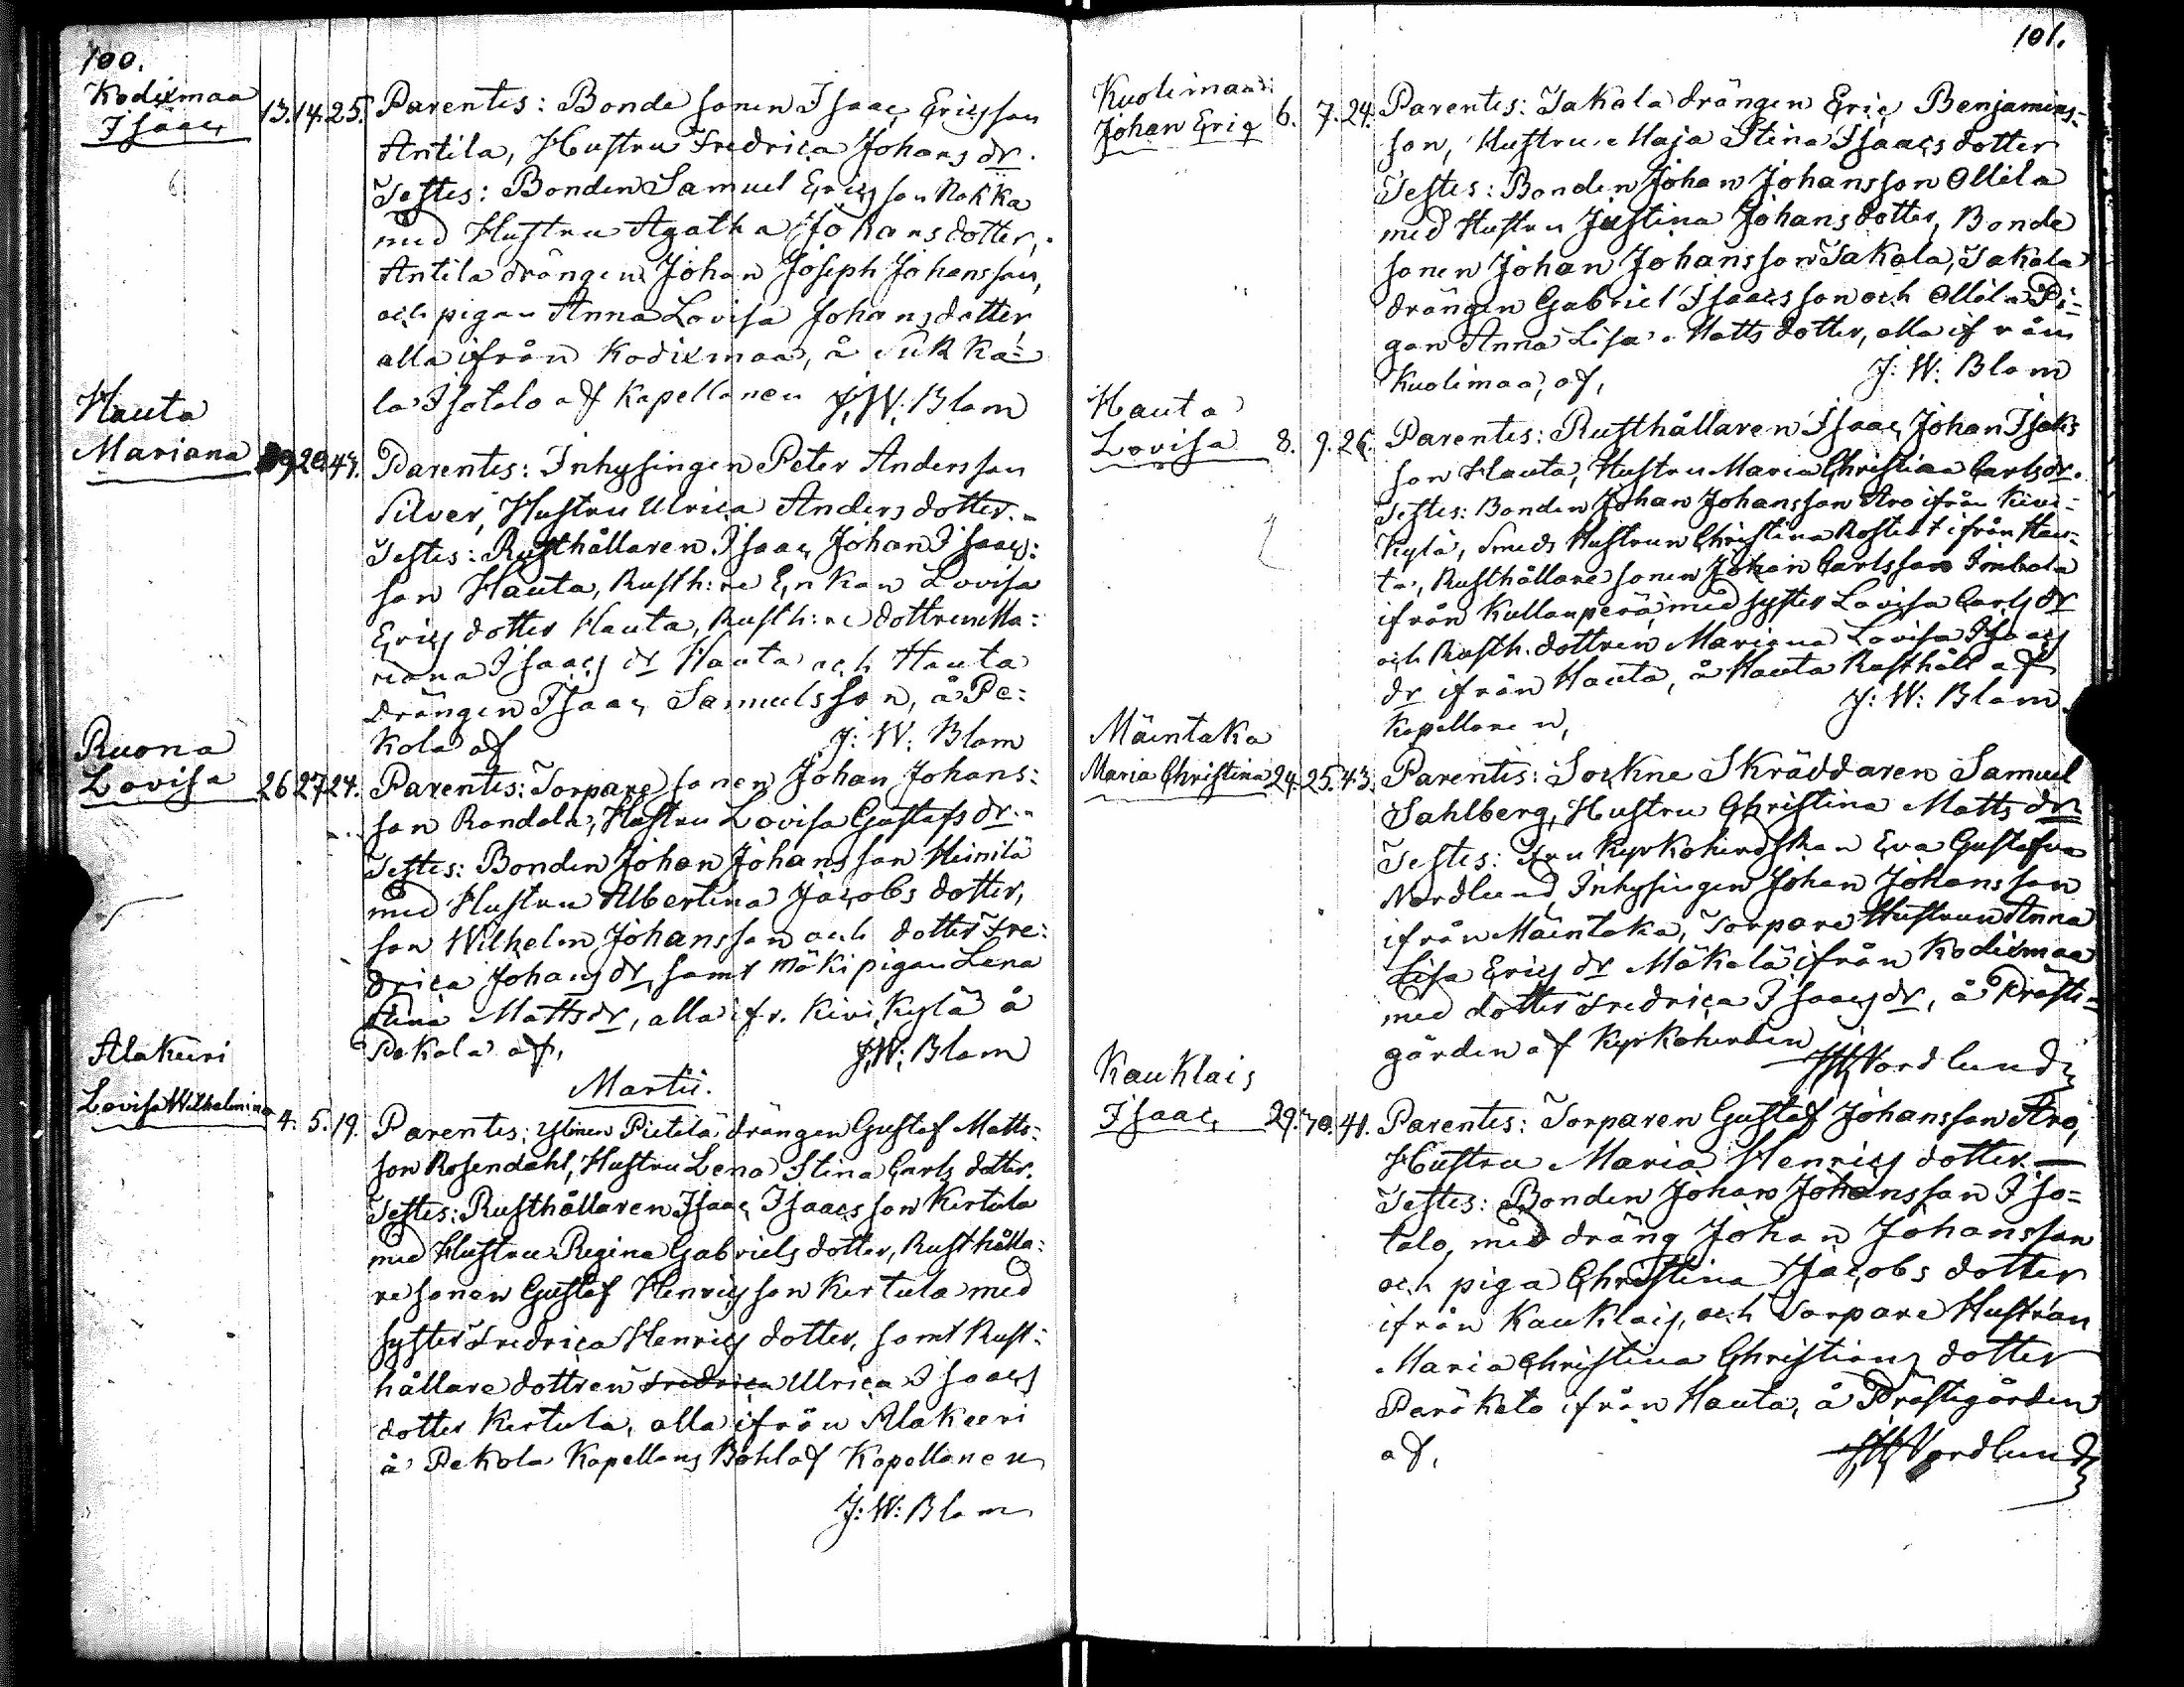 100.
Kodixmaa
Isaac 13. 14. 25. Parentes: Bonde sonen Isaac Ericsson
Antila, Hustru Fredrica Johans dr.
Testes: Bonden Samuel Ericsson Nokka
med Hustru Agatha Johansdotter,
Antila drängen Johan Joseph Johansson,
och pigan Anna Lovisa Johansdotter
alla ifrån Kodixmaa, å Sukka=
la Isotalo af Kapellanen J: W: Blom
Hauta
Mariana 19 20. 44. Parentes: Inhysingen Peter Andersson
Silver, Hustru Ulrica Anders dotter. -
Testes: Rusthållaren Isaac Johan Isaacs:
son Hauta, Rusth:re Enkan Lovisa
Erics dotter Hauta, Rusth:re dottren Ma:
riana Isaacs dr Hauta och Hauta
drängen Isaac Samuelsson, å Pe:
kola af J: W: Blom
Ruona
Lovisa 26 27 24. Parentes: Torpare sonen Johan Johans:
son Randala, Hustru Lovisa Gustafs dr. -
Testes: Bonden Johan Johansson Heinilä
med Hustru Albertina Jacobs dotter,
son Wilhelm Johansson och dotter Fre:
drica Johans dr, samt Mäki pigan Lena
Stina Matts dr, alla ifr. Kivikylä å
Pekola af, J: W: Blom
Martii.
Alakeeri
Lovisa Wilhelmina 4. 5. 19. Parentes: Ylinen Pietilä drängen Gustaf Matts:
son Rosendahl, Hustru Lena Stina Carls dotter.
Testes: Rusthållaren Isaac Isaacsson Kertula
med Hustru Regina Gabriels dotter, Rusthålla:
re sonen Gustaf Henricsson Kertula med
syster Fredrica Henrics dotter, samt Rust:
hållare dottren Fredrica Ulrica Isaacs
dotter Kertula, alla ifrån Alakeeri
å Pekola Kapellans Bohl af Kapellanen
J: W: Blom
101.
Kuolimaa:
Johan Eric 6. 7. 24. Parentes: Jakola drängen Eric Benjamins=
son, Hustru Maja Stina Isaacs dotter
Testes: Bonden Johan Johansson Ollila
med Hustru Justina Johansdotter, Bonde
sonen Johan Johansson Jakola, Jakola
drängen Gabriel Isaacsson och Ollila Pi=
gan Anna Lisa Matts dotter, alla ifrån
Kuolimaa, af, J: W: Blom
Hauta
Lovisa 8. 9. 26. Parentes: Rusthållaren Isaac Johan Isaks
son Hauta, Hustru Maria Christina Carls dr.
Testes: Bonden Johan Johansson Aro ifrån Kivi=
kylä, Smeds Hustrun Christina Rostedt ifrån Hau=
ta, Rusthållare sonen Johan Carlsson Imbola
ifrån Kullanperä, med syster Lovisa Carls dr
och Rusth. dottren Mariana Lovisa Isaacs
dr ifrån Hauta, å Hauta Rusthåll af
Kapellanen, J: W: Blom.
Mäentaka
Maria Christina 24. 25. 43. Parentes: Sockne Skräddaren Samuel
Sahlberg, Hustru Christina Matts dr
Testes: Fru Kyrkoherdskan Eva Gustafva
Nordlund, Inhysingen Johan Johansson
ifrån Mäentaka, Torpare Hustrun Anna
Lisa Erics dr Mäkelä ifrån Kodixmaa
med dotter Fredrica Isaacs dr, å Präste=
gården af Kyrkoherden Nordlund
Kauklais
Isaac 29. 30. 41. Parentes: Torparen Gustaf Johansson Aro,
Hustru Maria Henrics dotter. —
Testes: Bonden Johan Johansson Iso=
talo, med dräng Johan Johansson
och piga Christina Jacobs dotter
ifrån Kauklais, och Torpare Hustrun
Maria Christina Christians dotter
Peräketo ifrån Hauta, å Prästegården
af, Nordlund